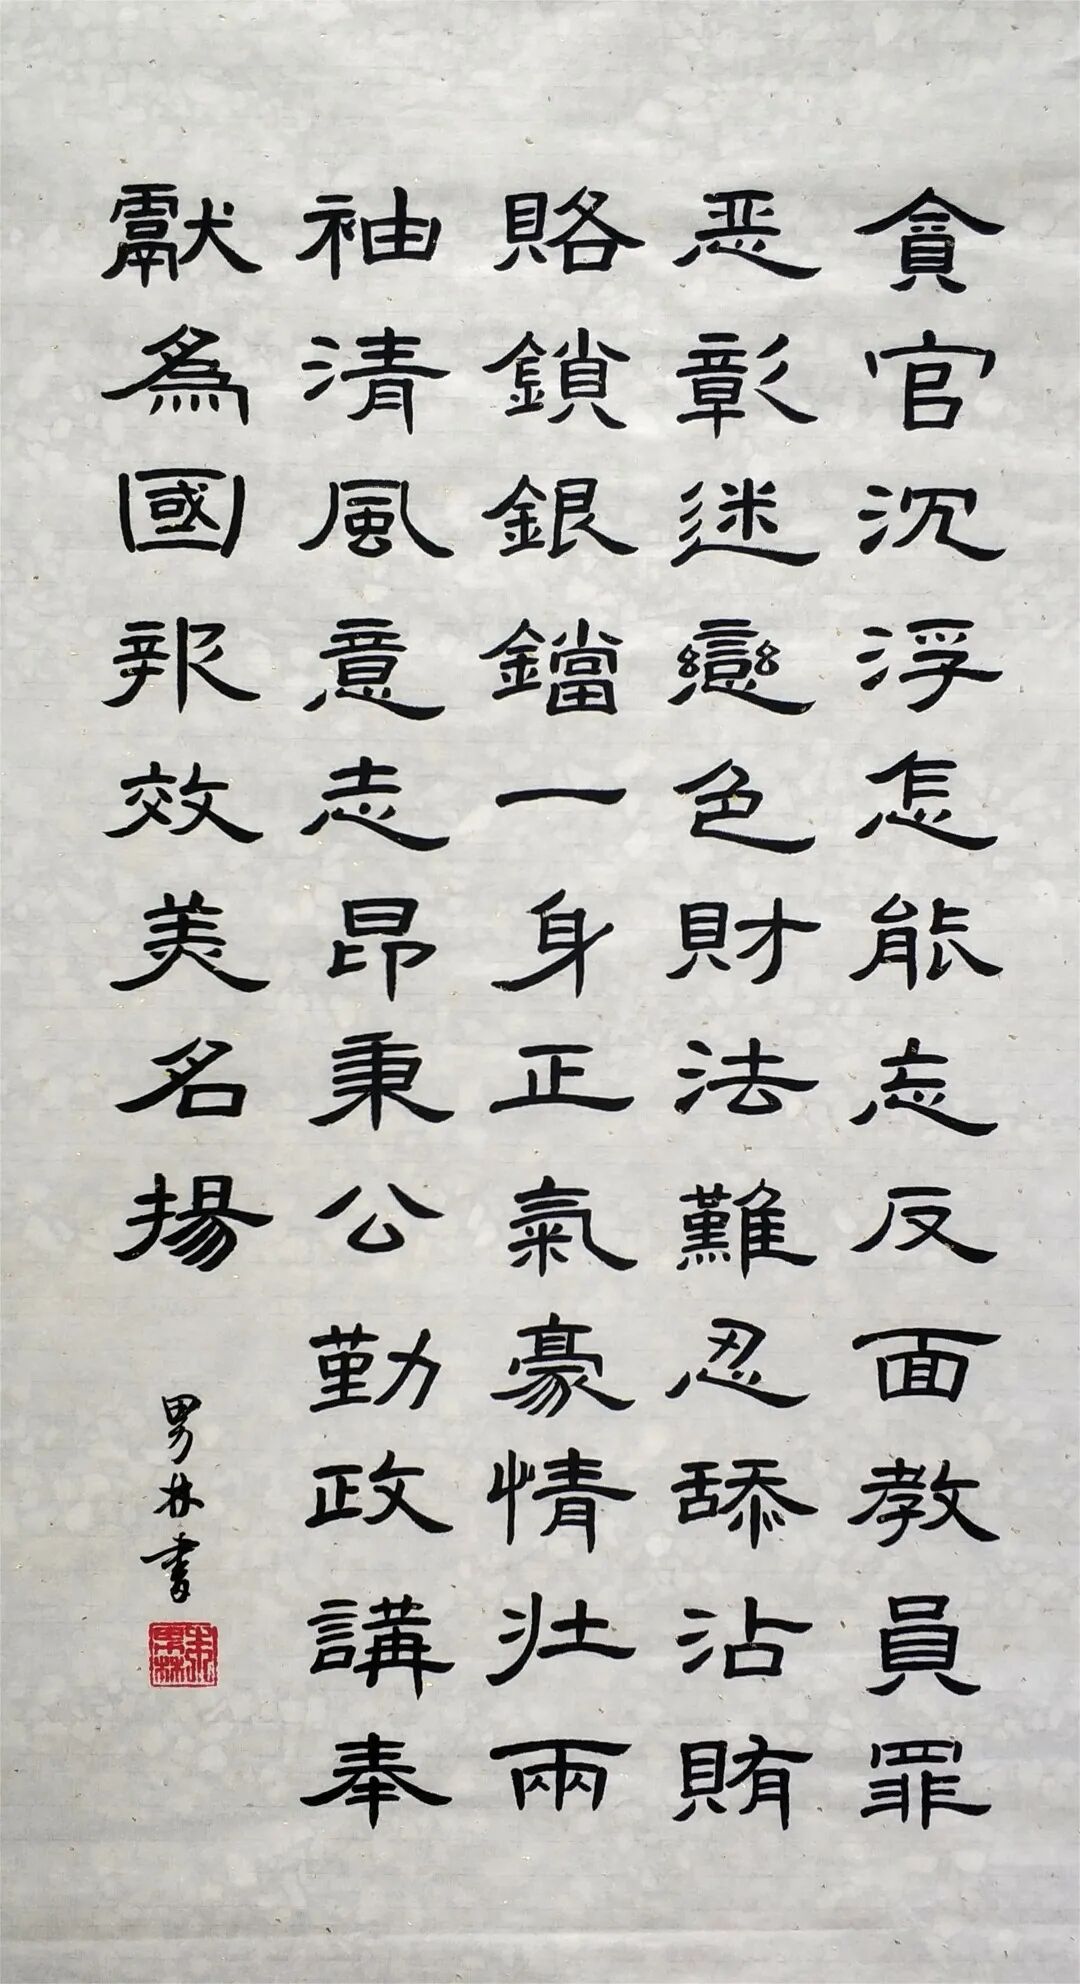 貪官沉浮怎能忘反面教員罪
恶彰迷戀色財法難忍舔沾賄
賂鎖銀鐺一身正氣豪情壯兩
袖清風意志昂秉公勤政講奉
獻為國報效美名揚
男林書